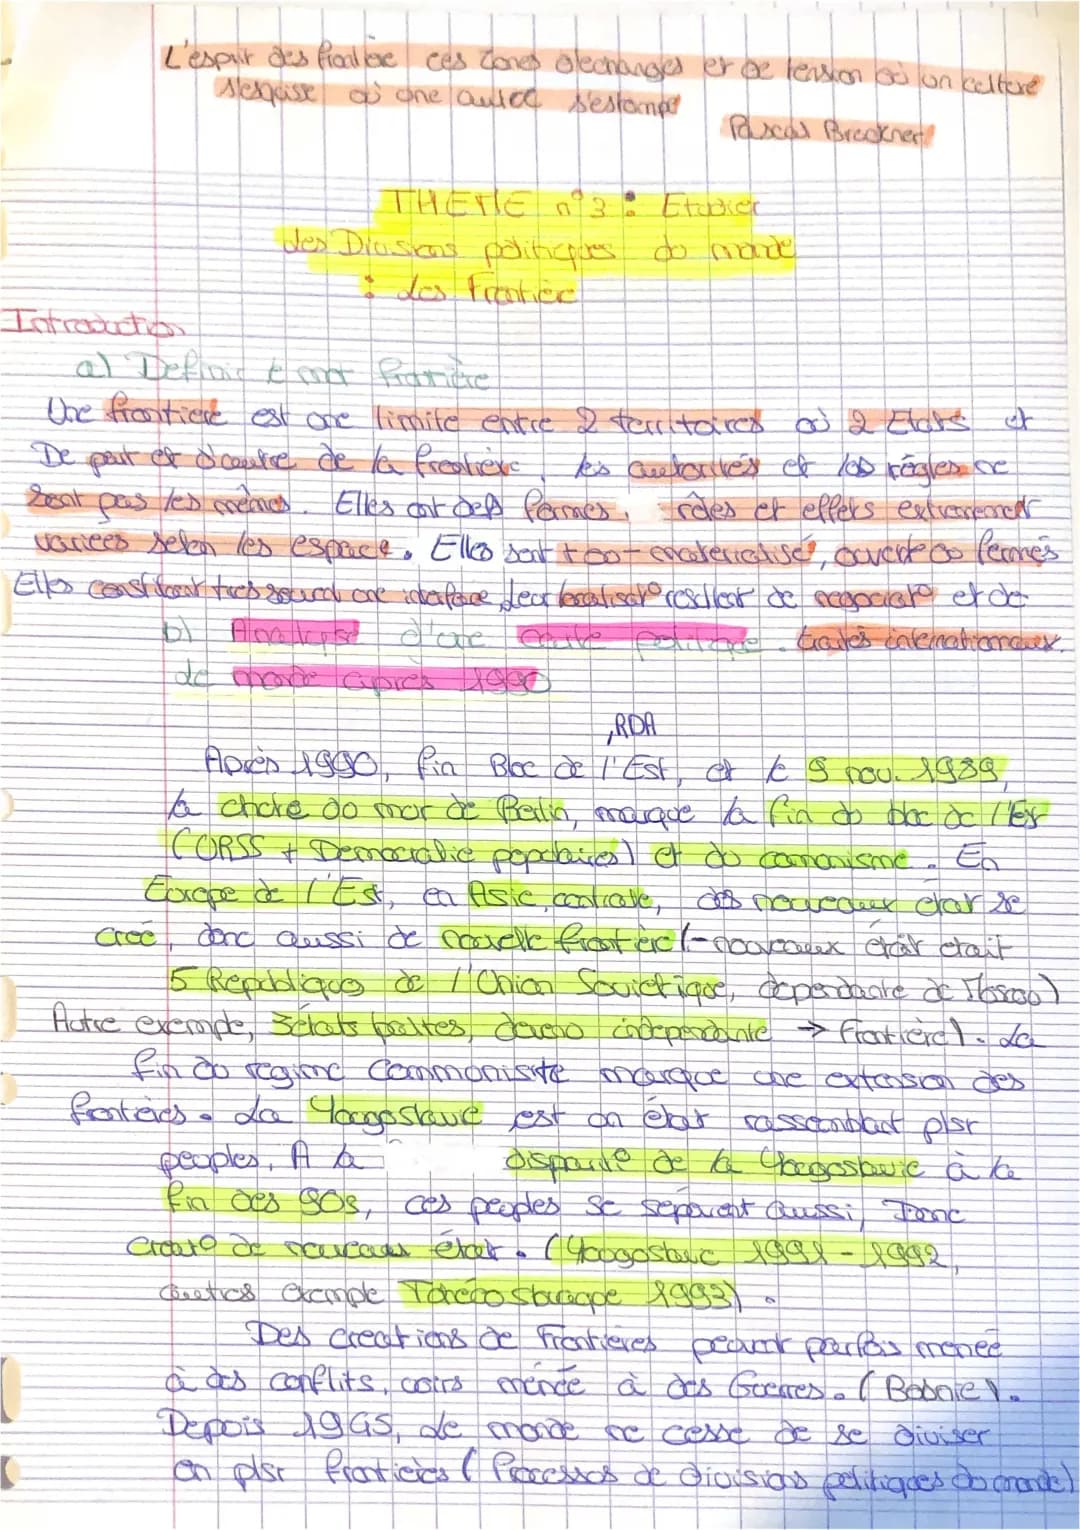 L'espair des frontière ces zones d'echanges et de tension où un culture
s'esquise où une autre s'estompe
Pascal Breckner
THEME n°3 : Etudier
des Divisions politiques du monde
: les Frontière
Introduction
a) Définir le mot frontière
Une frontiere est une limite entre 2 territoires où 2 Etats et
De part et d'autre de la frontière, les autorités et les règles ne
sont pas les mêmes. Elles ont des formes, rôles et effets extremement
variées selon les espace. Elles sont + ou - matérialisé, ouverte ou fermés
Elles constituent tres souvent une interface, leur localisat° resultent de negociat° et de
b) Analyse d'une carte politique. traités internationaux.
de monde apres 1990
, RDA
Après 1990, fin Bloc de l'Est, et le 9 nov. 1989,
la chute du mur de Berlin, marque la fin du bloc de l'Est
(URSS + Democratie populaires) et du communisme. En
Europe de l'Est, en Asie centrale, des nouveaux etat se
creé, donc aussi de nouvelle frontière (-nouveaux état etait
5 Republiques de l'Union Sovietique, dependante de Moscou)
Autre exemple, 3 états baltes, devenu independante → Frontière). La
fin du regime Communisite marque une extension des
frontières. La Yougoslavie est un état rassemblant plsr
peuples. A la disparit° de la Yougoslavie à la
fin des 90s, ces peuples se separent aussi, Donc
Creat° de nouveaux état. (Yougoslavie 1991-1992,
autres exemple Tchécoslovaque 1993).
Des creations de Frontières peuvent parfois menée
à des conflits, voirs menée à des Guerres. (Bosnie).
Depuis 1945, le monde ne cesse de se diviser
en plsr frontières (Processus de divisions politiques du monde)